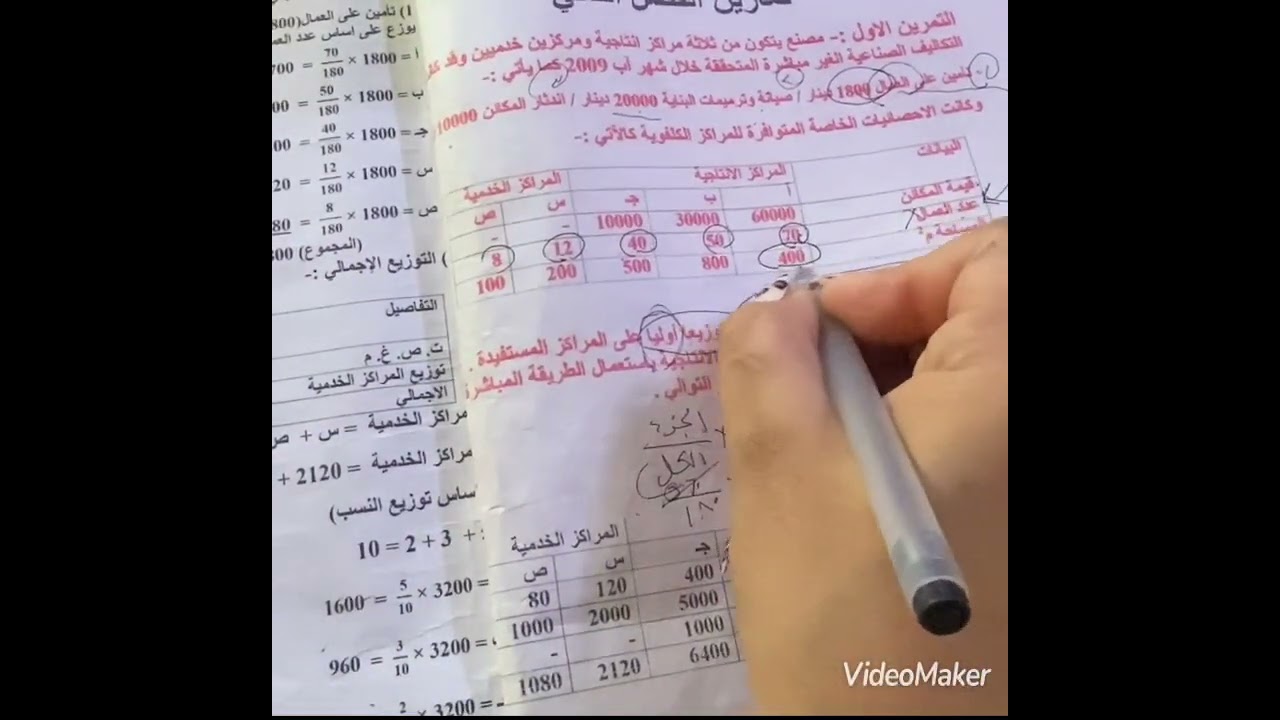 التمرين الاول :- مصنع يتكون من ثلاثة مراكز انتاجية ومركزين خدميين وقد
التكاليف الصناعية الغير مباشرة المتحققة خلال شهر آب 2009 كما يأتي :-
تأمين على العمال 1800 دينار / صيانة وترميمات البناية 20000 دينار / اندثار المكائن 10000
وكانت الاحصائيات الخاصة المتوافرة للمراكز الكلفوية كالآتي :-
البيانات المراكز الانتاجية المراكز الخدمية
أ ب جـ س ص
قيمة المكائن 60000 30000 10000 - -
عدد العمال 70 50 40 12 8
المساحة م² 400 800 500 200 100
أوليا على المراكز المستفيدة .
الانتاجية باستعمال الطريقة المباشرة
التوالي .
الجزء
الكل
١٨٠
المراكز الخدمية
جـ س ص
400 120 80
5000 2000 1000
1000 - -
6400 2120 1080
1) تأمين على العمال (800
يوزع على اساس عدد
أ = 1800 × 70/180 = 700
ب = 1800 × 50/180 = 00
جـ = 1800 × 40/180 = 00
س = 1800 × 12/180 = 20
ص = 1800 × 8/180 = 80
(المجموع) 800
) التوزيع الإجمالي :-
التفاصيل
ت. ص. غ. م
توزيع المراكز الخدمية
الاجمالي
مراكز الخدمية = س + ص
مراكز الخدمية = 2120 +
ساس توزيع النسب)
+ 3 + 2 = 10
= 3200 × 5/10 = 1600
= 3200 × 3/10 = 960
= 3200 × 2
VideoMaker